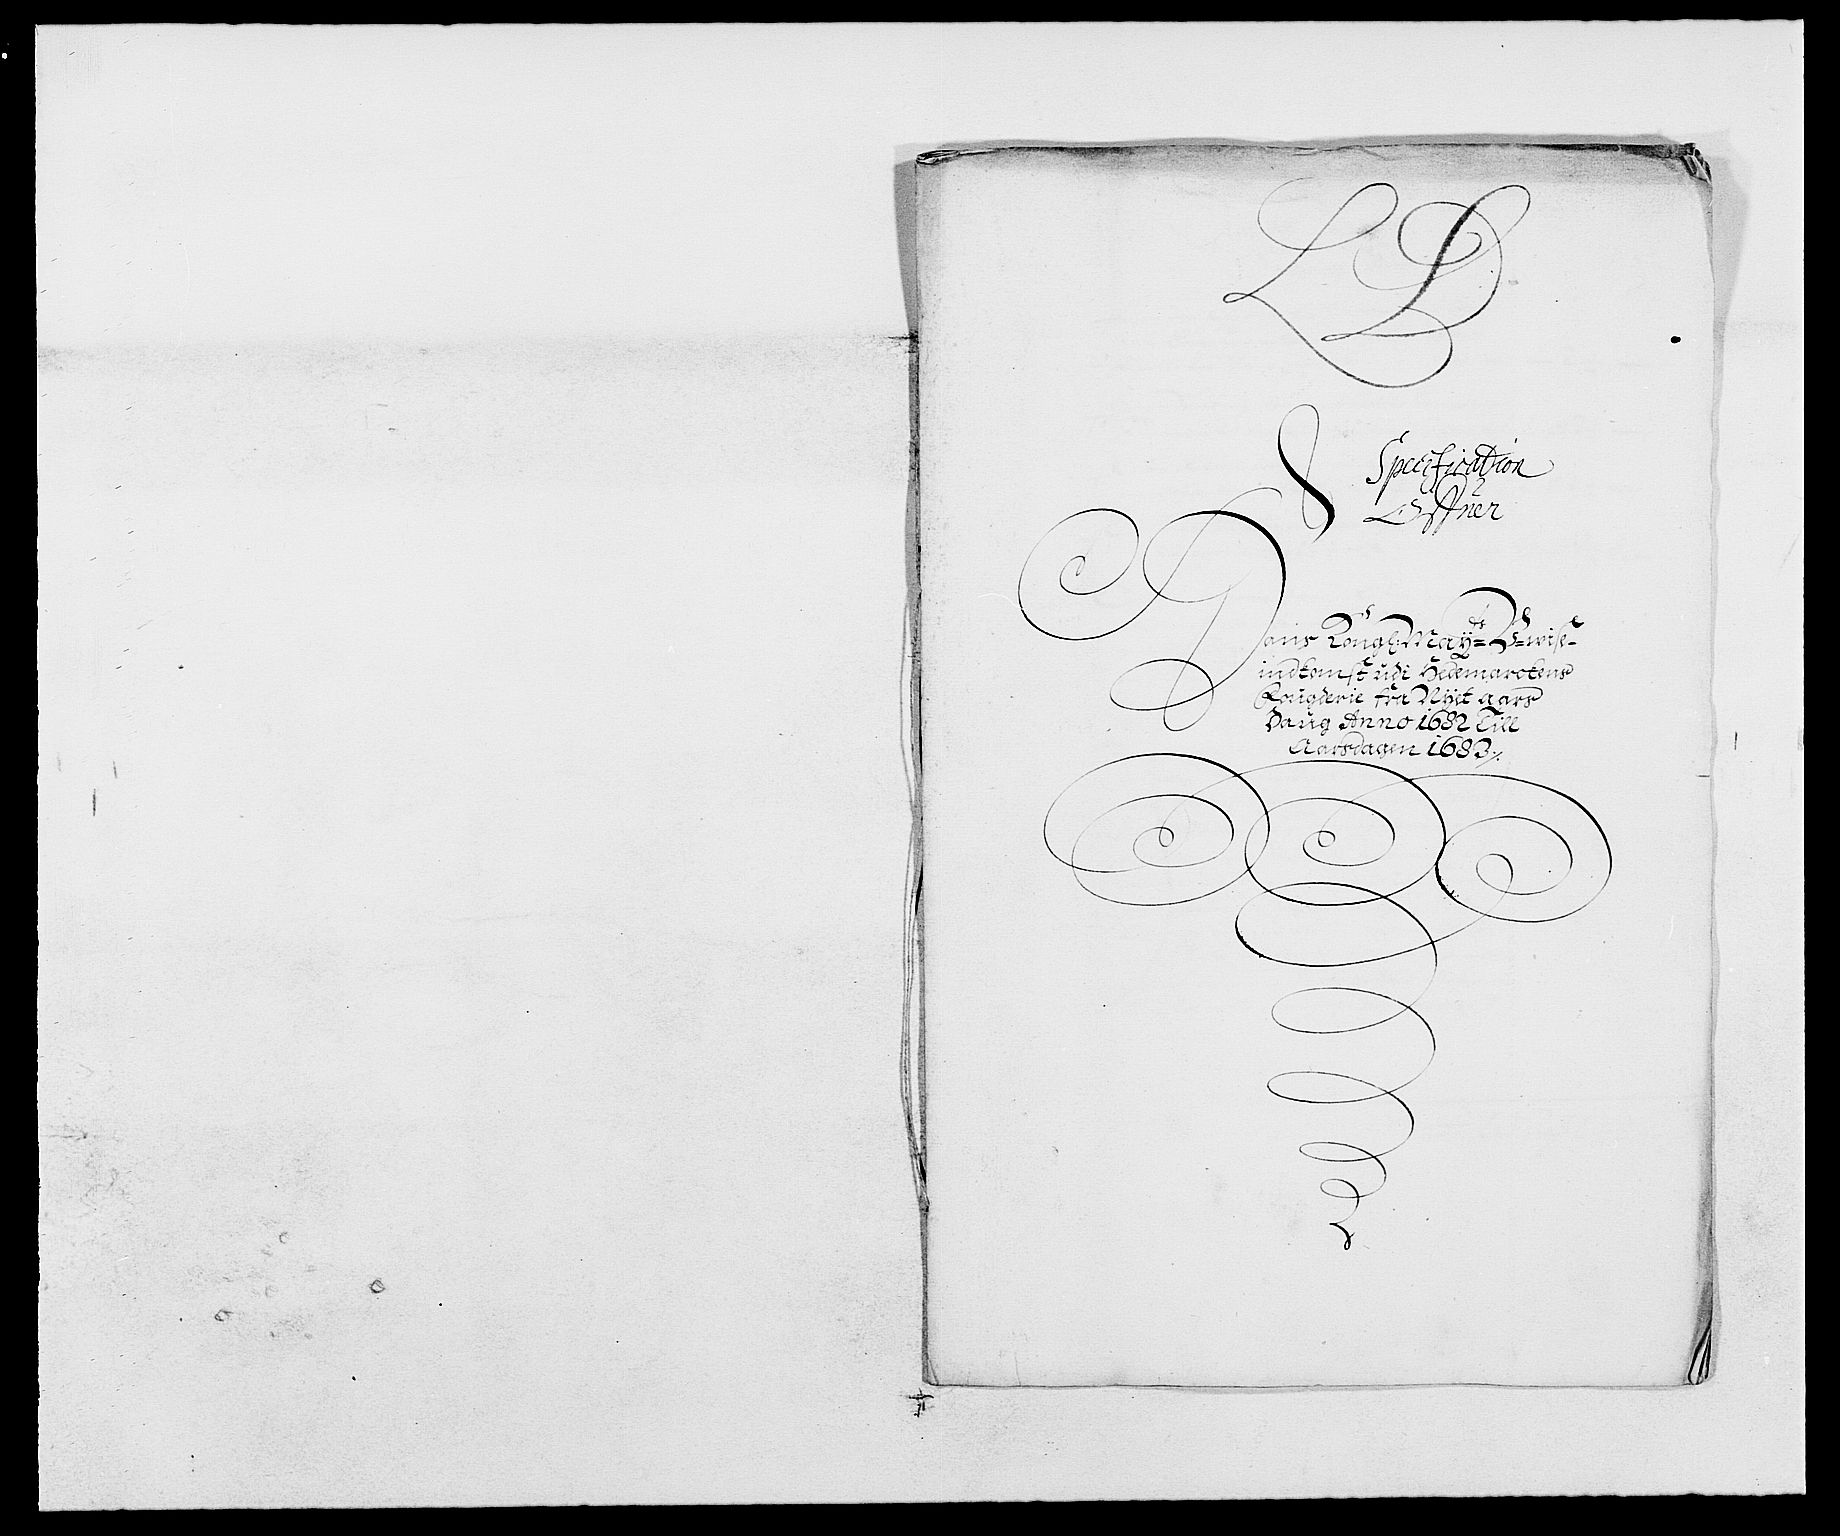 LD
Specification
Effter
Hans Kongl: May:ts U-wise-
indkomst udi Hedemarckens
Fougderie fra Nyet aars
daug Anno 1682 Till
Aarsdagen 1683/.